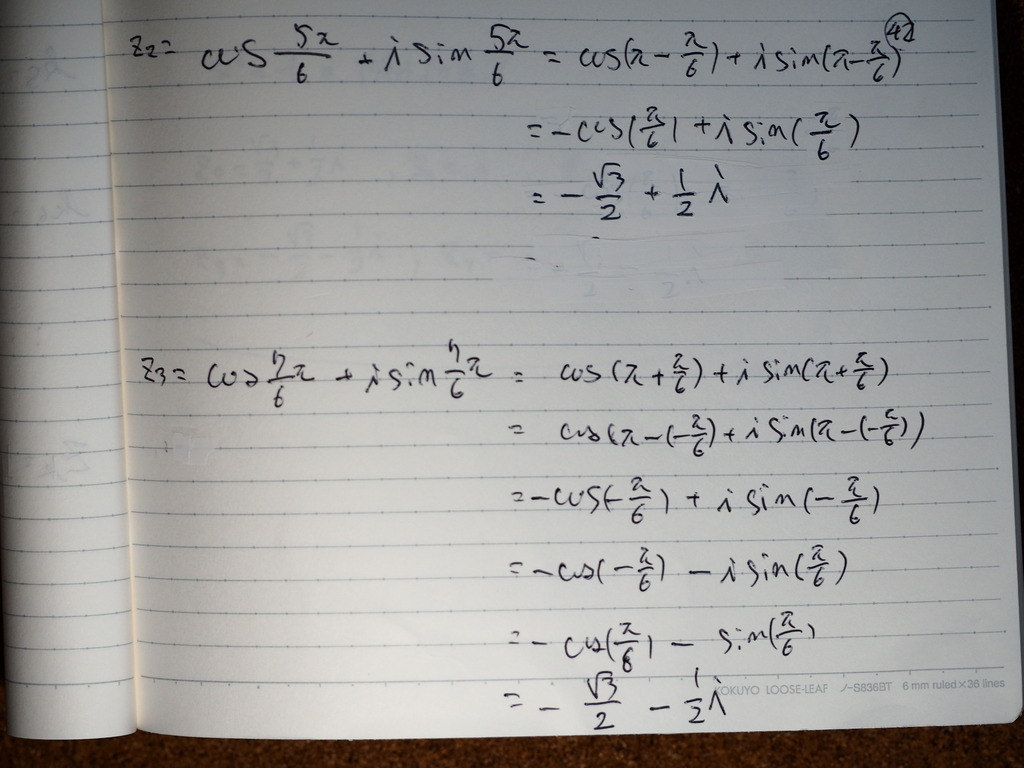 42
z₂ = cos 5π/6 + i sin 5π/6 = cos(π - π/6) + i sin(π - π/6)
= -cos(π/6) + i sin(π/6)
= - √3/2 + 1/2 i
z₃ = cos 7/6 π + i sin 7/6 π = cos(π + π/6) + i sin(π + π/6)
= cos(π - (-π/6) + i sin(π - (-π/6))
= -cos(-π/6) + i sin(-π/6)
= -cos(-π/6) - i sin(π/6)
= -cos(π/6) - sin(π/6)
= - √3/2 - 1/2 i
KOKUYO LOOSE-LEAF ノ-S836BT 6 mm ruled×36 lines